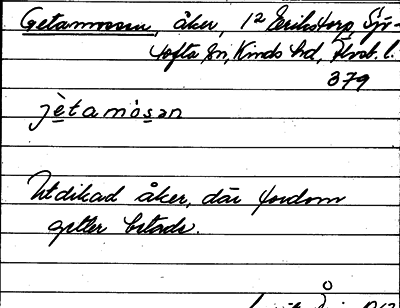 Getamossen, åker, 12 Erikstorp, Sjö-
tofta sn, Kinds hd, Älvsb. l.
379
jètamósan
Utdikad åker, där fordom
getter betade.